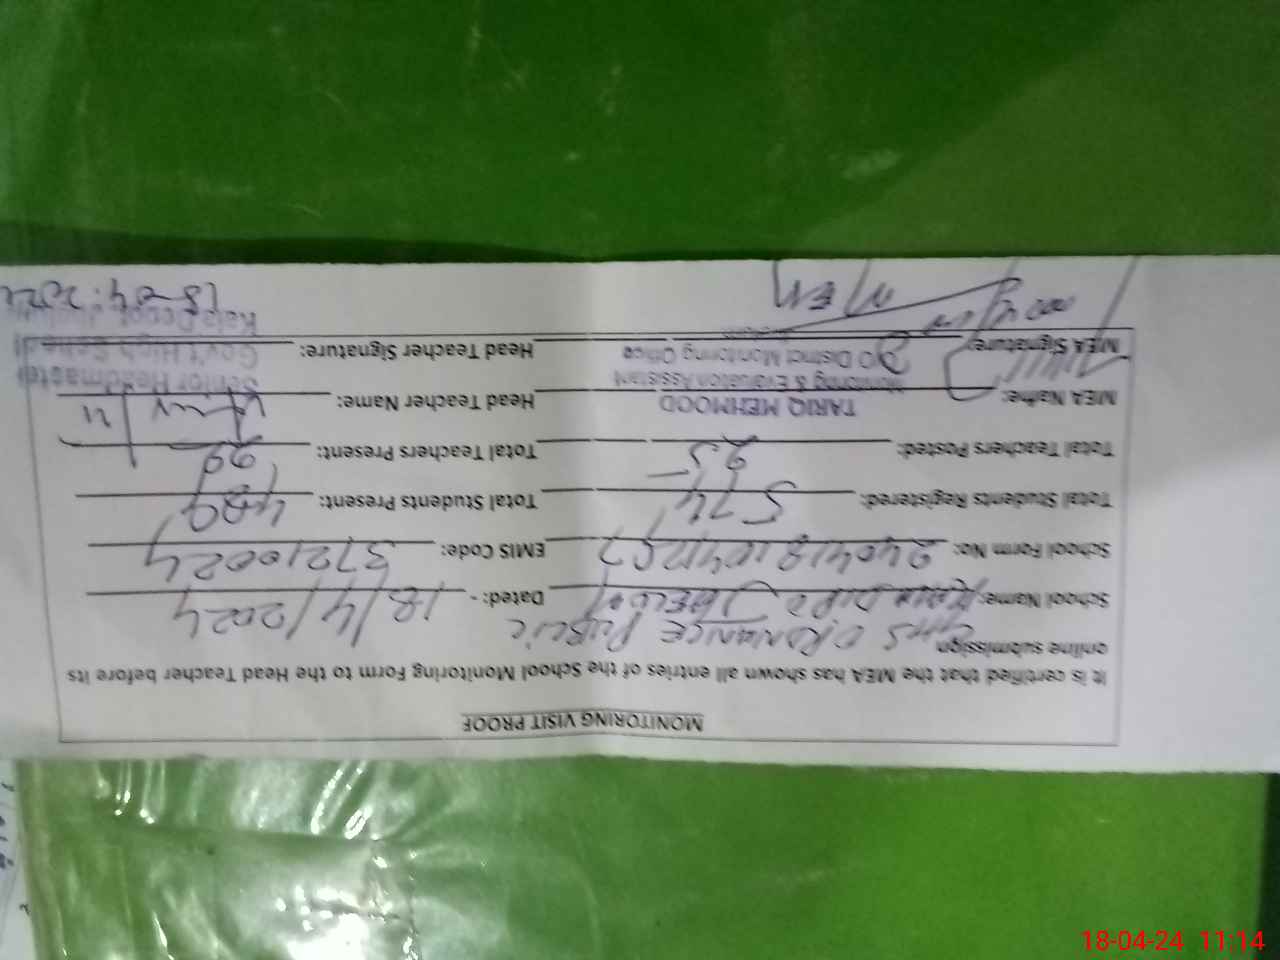 MONITORING VISIT PROOF
It is certified that the MEA has shown all entries of the School Monitoring Form to the Head Teacher before its
online submission GHS ORDNANCE PUBLIC
School Name: Dated: - 18/4/2024
School Form No: EMIS Code: 37210024
Total Students Registered: 574 Total Students Present: 489
Total Teachers Posted: 25 Total Teachers Present:
MEA Name: TARIQ MEHMOOD Head Teacher Name:
Monitoring & Evaluation Assistant Senior Headmaster
MEA Signature: O/O District Monitoring Office Head Teacher Signature: Gov't High School
MEA 18-04-2024
18-04-24 11:14